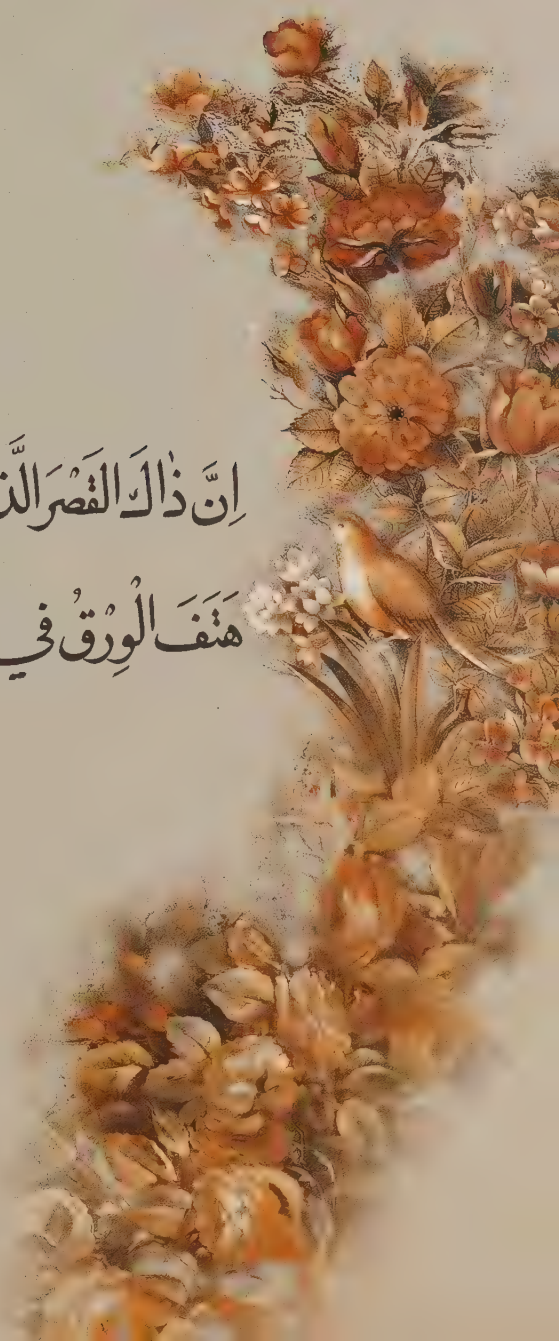 اِنَّ ذٰاكَ القَصْرَ الَّذ
هَتَفَ الْوِرْقُ في